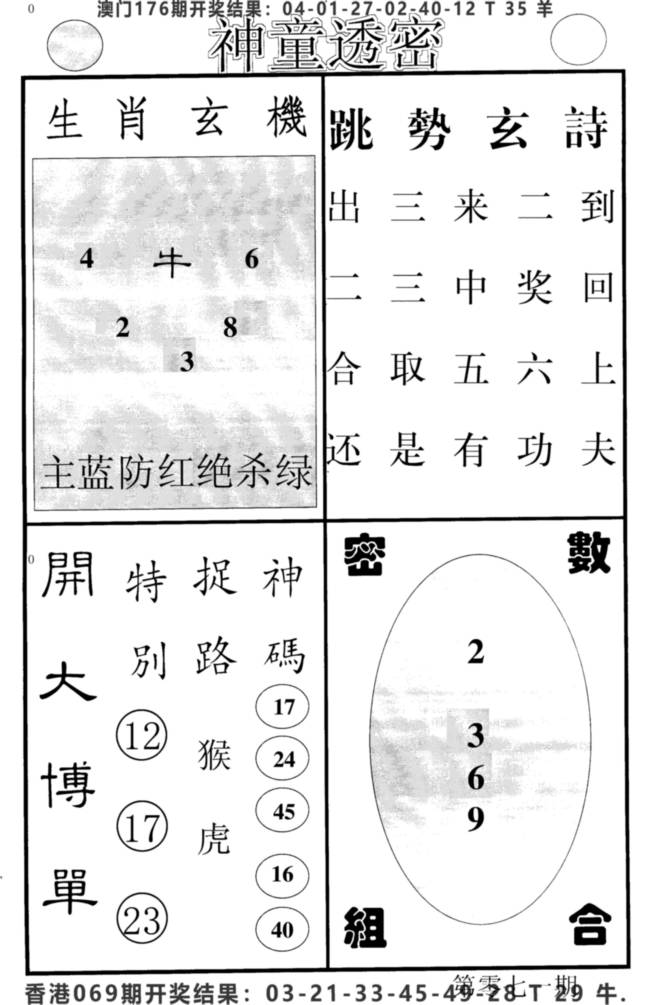 0
澳门176期开奖结果：04-01-27-02-40-12 T 35 羊
神童透密
生肖玄機
4 牛 6
2 8
3
主蓝防红绝杀绿
跳勢玄詩
出三来二到
二三中奖回
合取五六上
还是有功夫
0
開大博單
特別
12
17
23
捉路
猴
虎
神碼
17
24
45
16
40
密數
2
3
6
9
組合
第零七一期
香港069期开奖结果：03-21-33-45-49-28 T 29 牛.